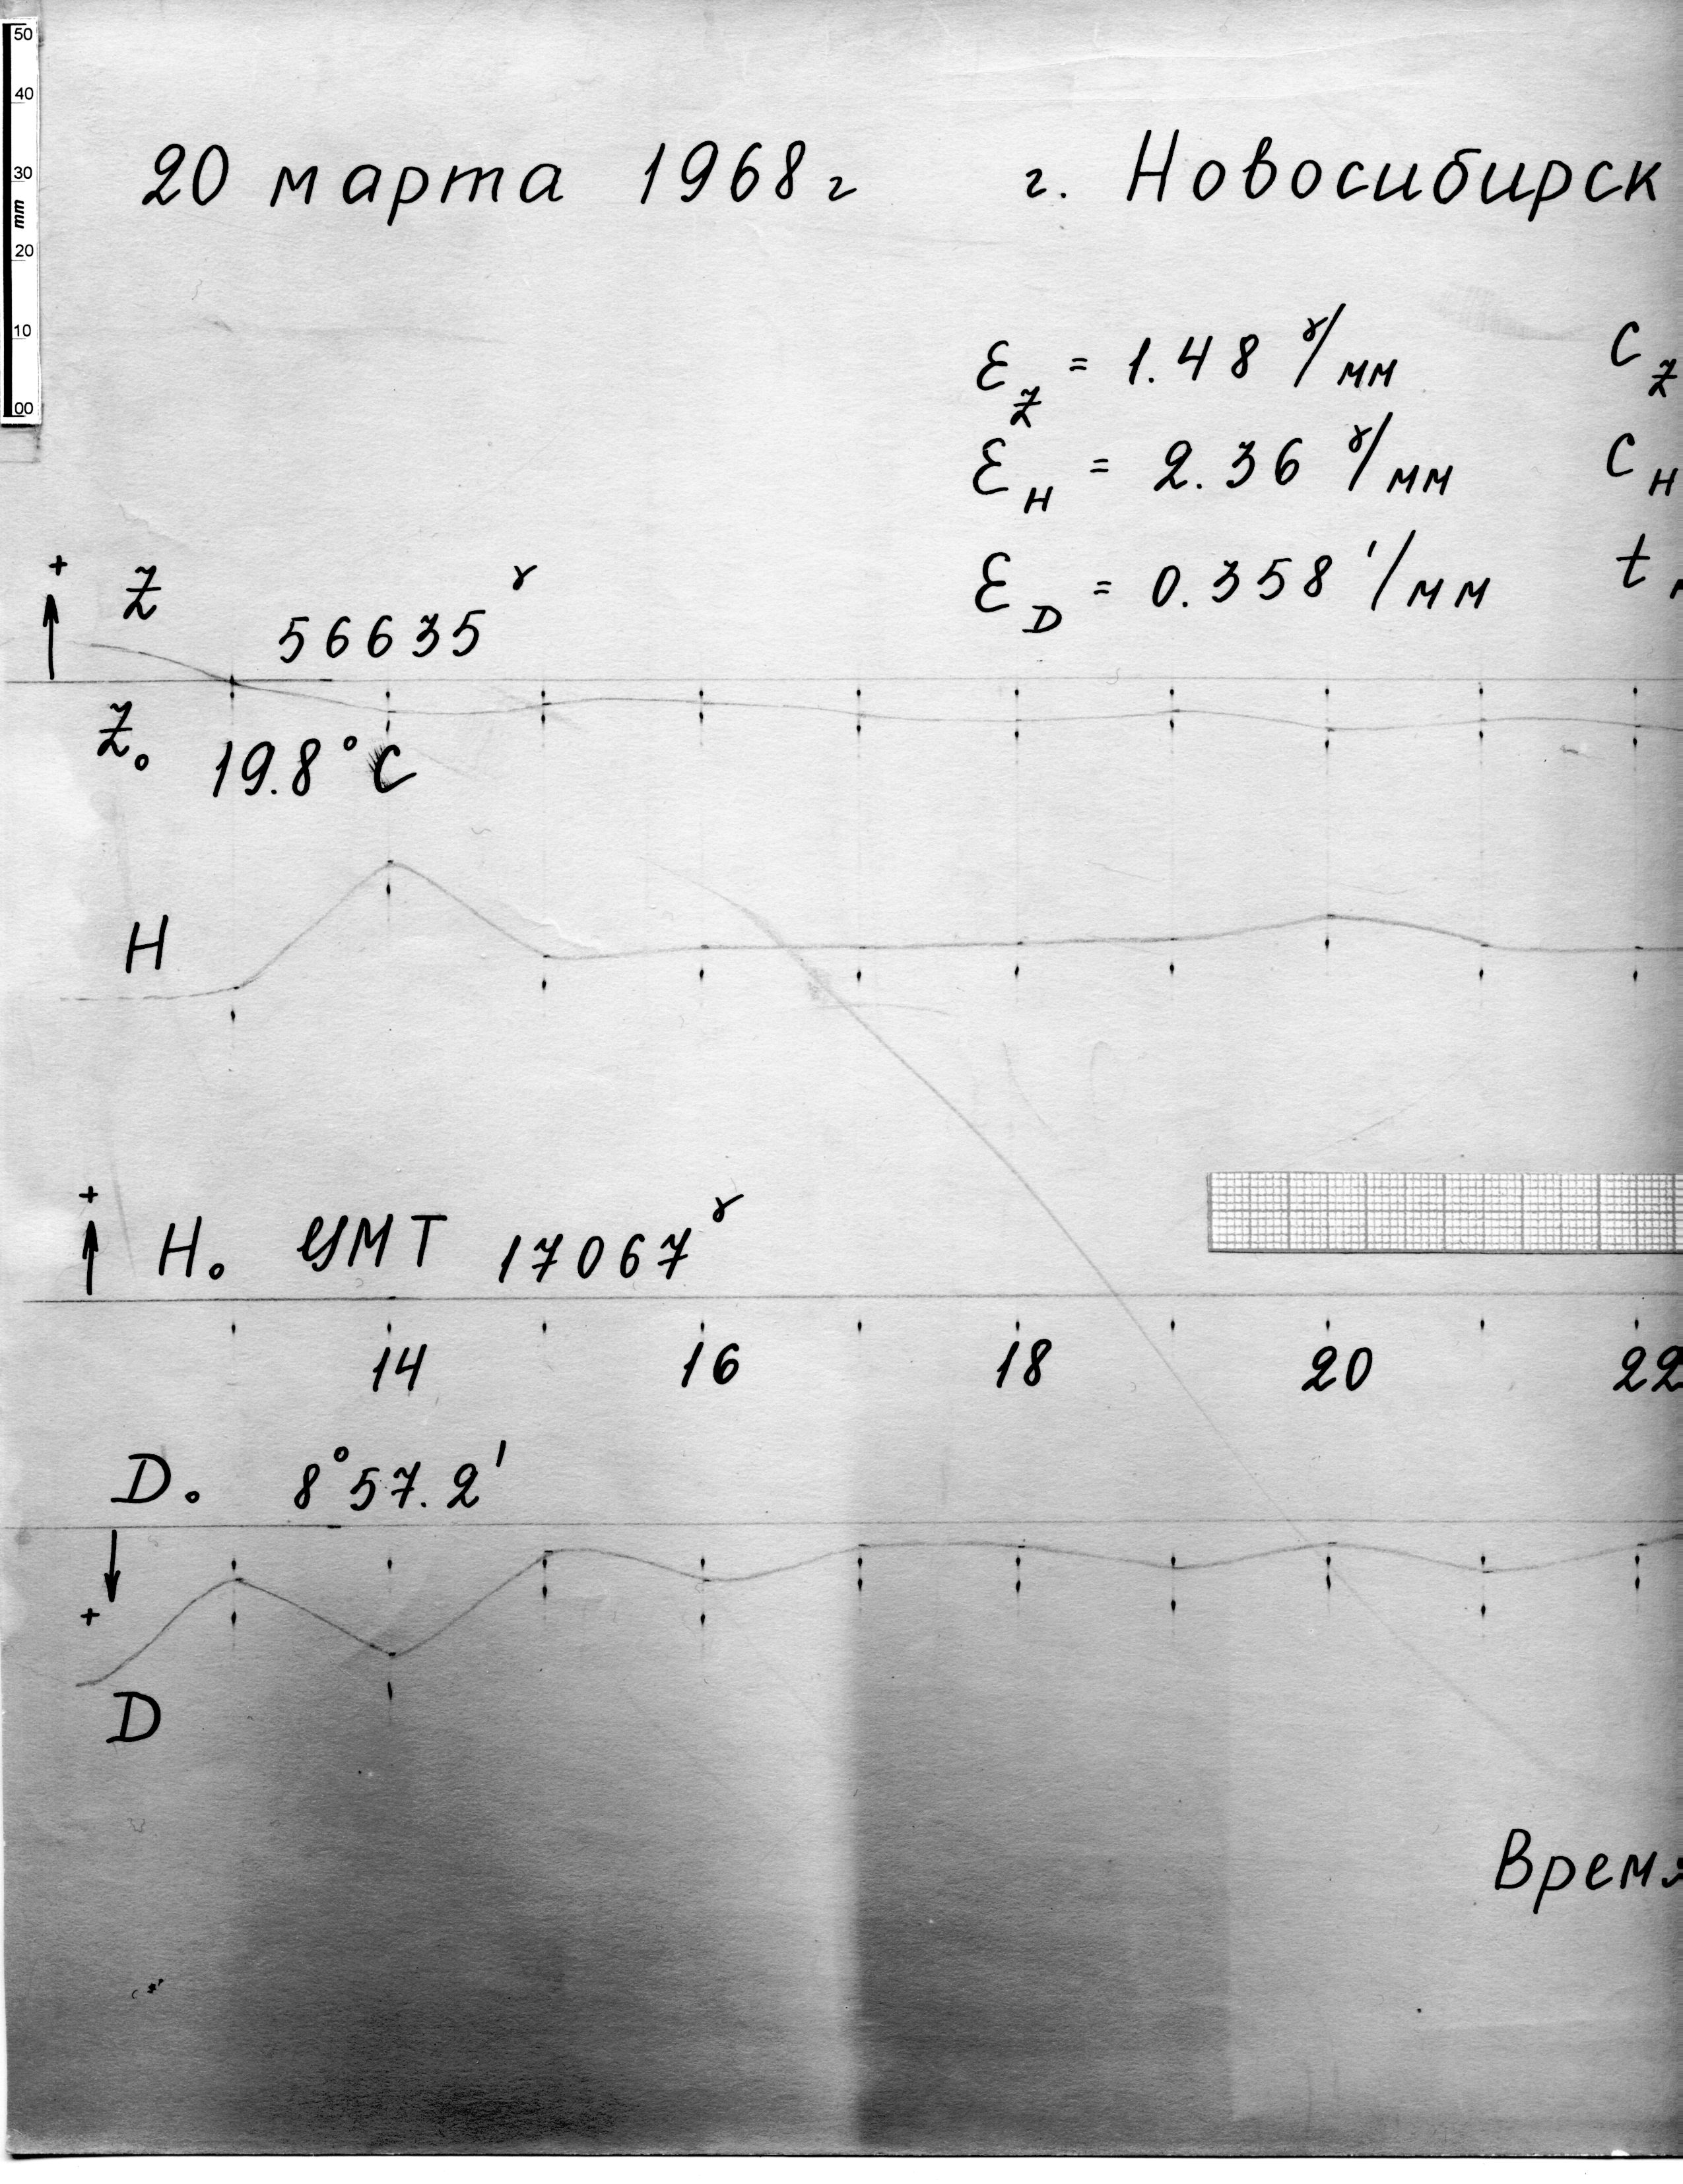 50
40
30
mm
20
10
00
20 марта 1968г г. Новосибирск
ε_Z = 1.48 γ/мм C_Z
ε_H = 2.36 γ/мм C_H
ε_D = 0.358 '/мм t
+ Z 56635 γ
Z₀ 19.8°C
H
+
H₀ УМТ 17067 γ
14 16 18 20 22
D₀ 8°57.2'
+
D
Время